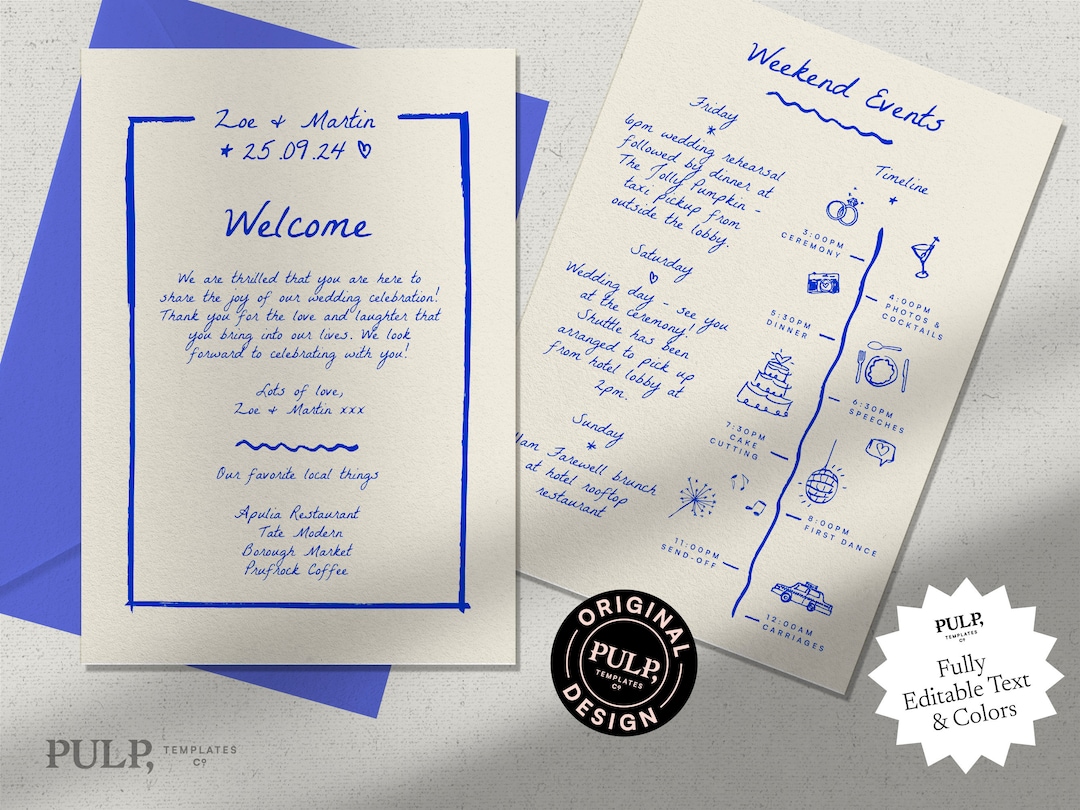 Zoe & Martin
* 25.09.24 ♡
Welcome
We are thrilled that you are here to
share the joy of our wedding celebration!
Thank you for the love and laughter that
you bring into our lives. We look
forward to celebrating with you!
Lots of love,
Zoe & Martin xxx
Our favorite local things
Apulia Restaurant
Tate Modern
Borough Market
Prufrock Coffee
Weekend Events
Friday
*
6pm wedding rehearsal
followed by dinner at
The Jolly Pumpkin -
taxi pickup from
outside the lobby.
Saturday
♡
Wedding day - see you
at the ceremony!
Shuttle has been
arranged to pick up
from hotel lobby at
2pm.
Sunday
*
11am Farewell brunch
at hotel rooftop
restaurant
Timeline
*
3:00PM
CEREMONY
4:00PM
PHOTOS &
COCKTAILS
5:30PM
DINNER
6:30PM
SPEECHES
7:30PM
CAKE
CUTTING
8:00PM
FIRST DANCE
11:00PM
SEND-OFF
12:00AM
CARRIAGES
ORIGINAL
PULP,
TEMPLATES
Co
DESIGN
PULP,
TEMPLATES
Co
Fully
Editable Text
& Colors
PULP,
TEMPLATES
Co